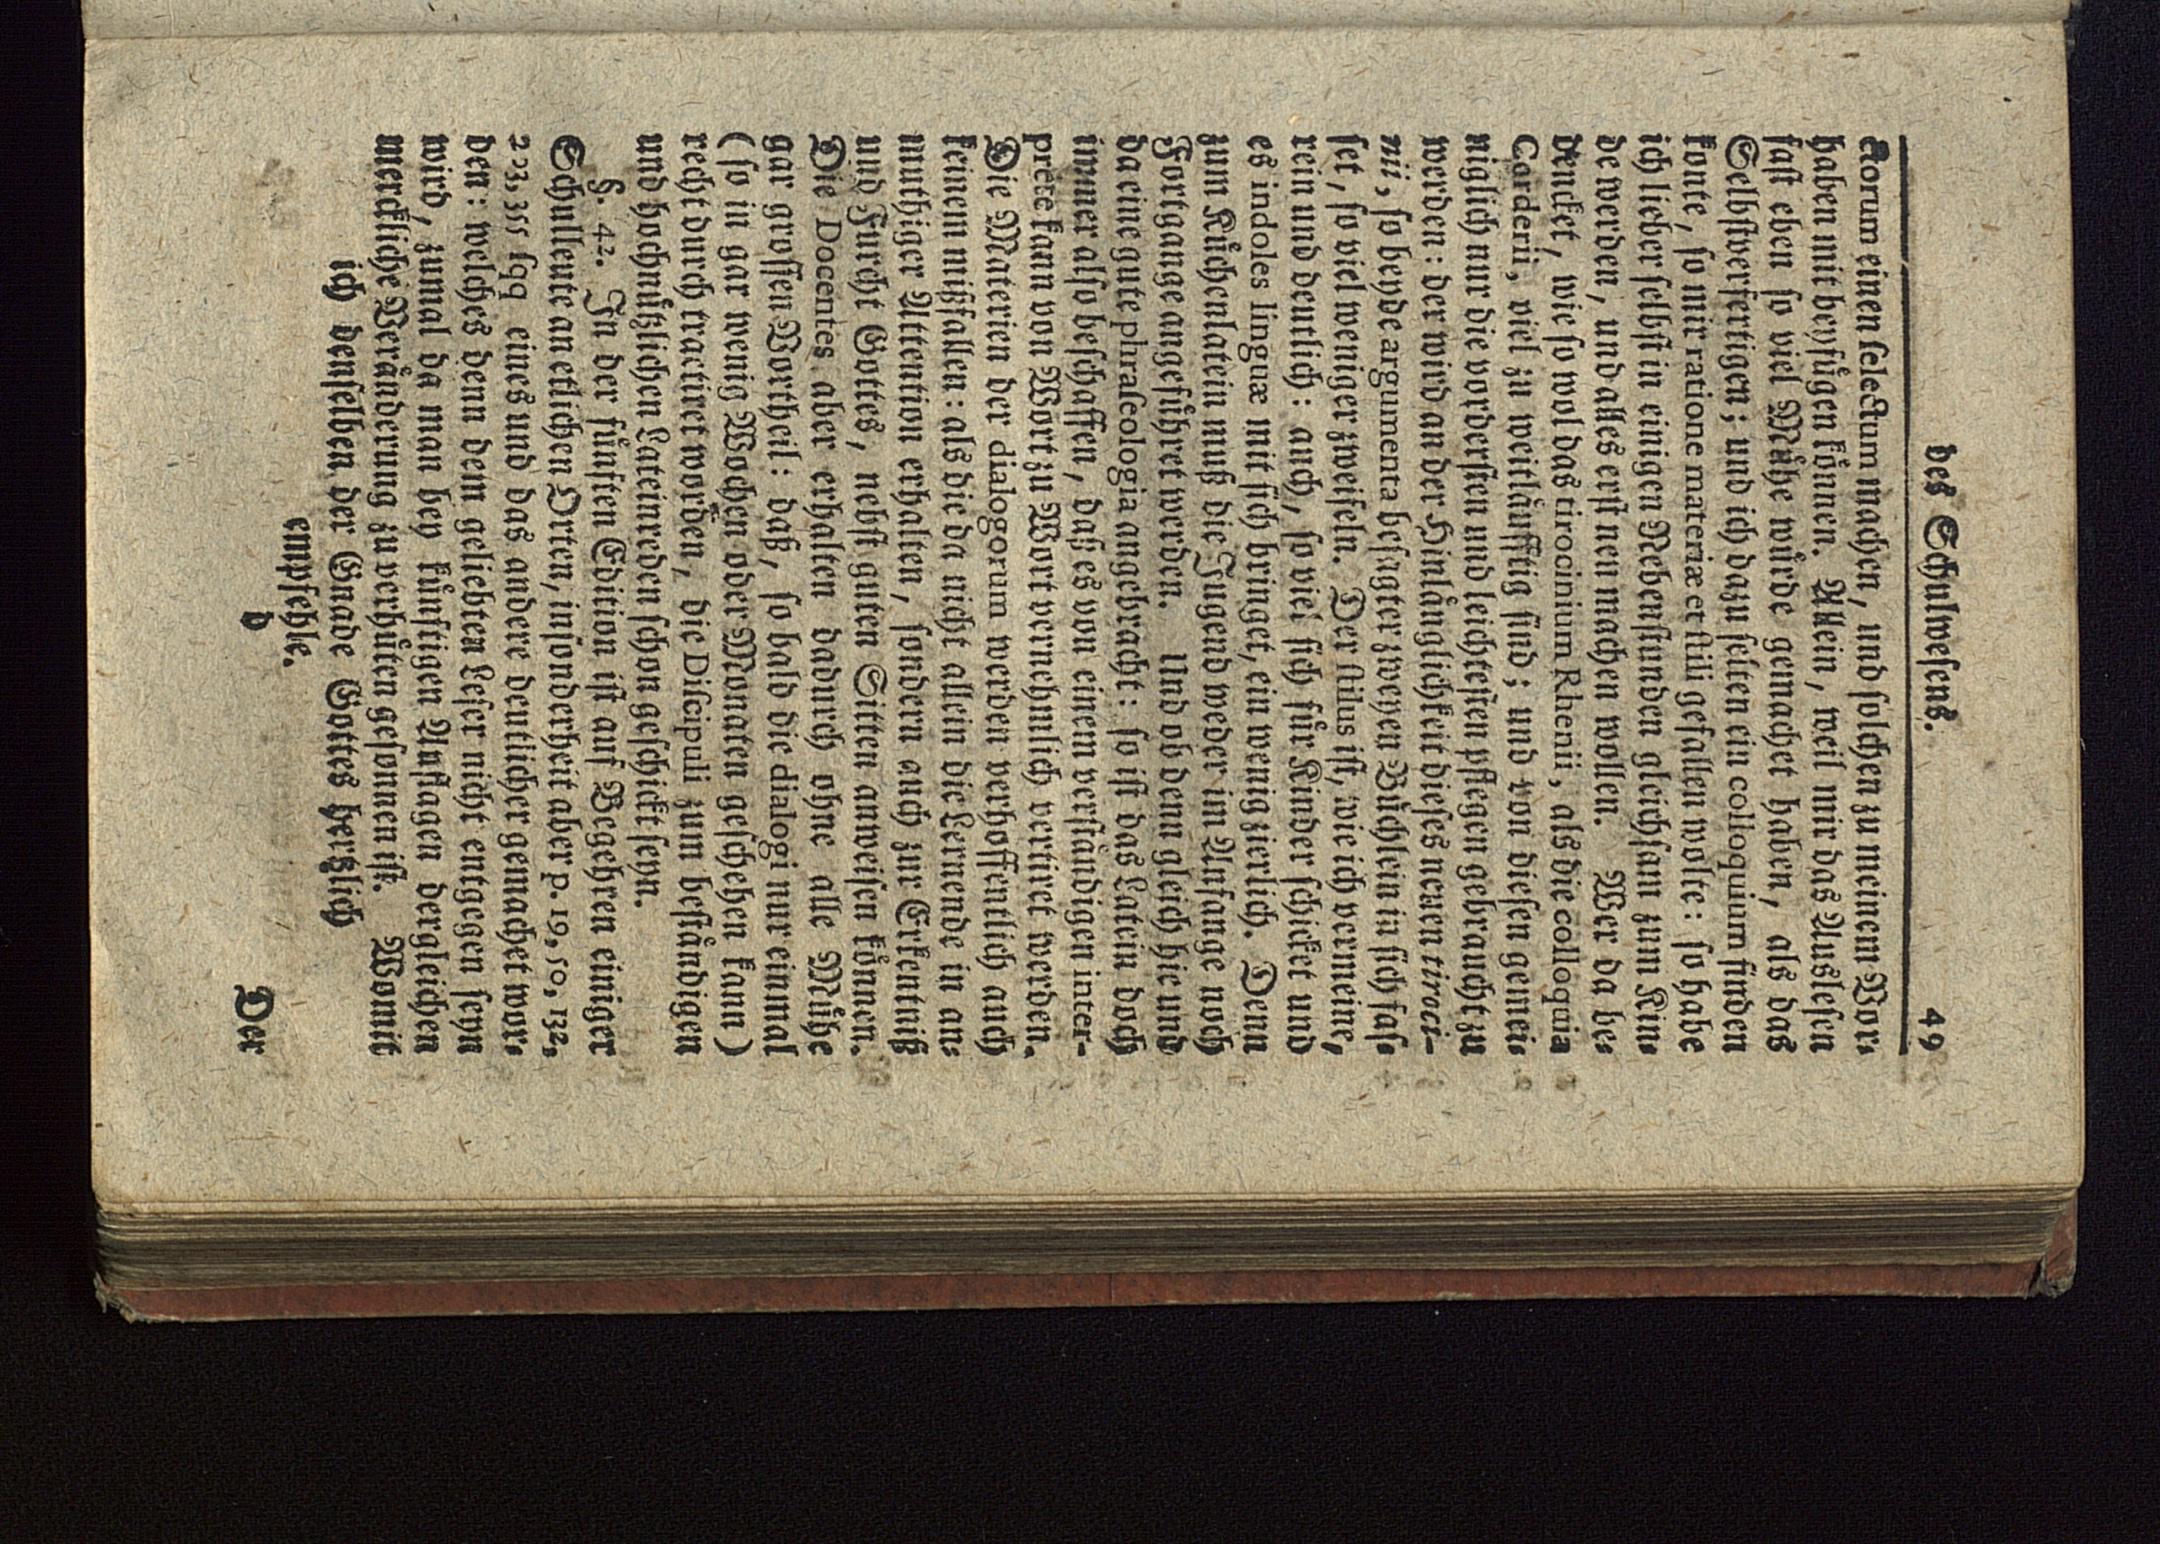 des Schulwesens. 49
ctorum einen selectum machen, und solchen zu meinem Vor-
haben mit beyfügen können. Allein, weil mir das Auslesen
fast eben so viel Mühe würde gemachet haben, als das
Selbstverfertigen; und ich dazu selten ein colloquium finden
konte, so mir ratione materiæ et stili gefallen wolte: so habe
ich lieber selbst in einigen Nebenstunden gleichsam zum Kin-
de werden, und alles erst neu machen wollen. Wer da be-
dencket, wie so wol das tirocinium Rhenii, als die colloquia
Corderii, viel zu weitläufftig sind; und von diesen gemei-
niglich nur die vordersten und leichtesten pflegen gebraucht zu
werden: der wird an der Hinlänglichkeit dieses neuen tiroci-
nii, so beyde argumenta besagter zweyen Büchlein in sich fas-
set, so viel weniger zweifeln. Der stilus ist, wie ich vermeine,
rein und deutlich: auch, so viel sich für Kinder schicket und
es indoles linguæ mit sich bringet, ein wenig zierlich. Denn
zum Küchenlatein muß die Jugend weder in Anfange noch
Fortgange angeführet werden. Und ob denn gleich hie und
da eine gute phraseologia angebracht: so ist das Latein doch
immer also beschaffen, daß es von einem verständigen inter-
prete kann von Wort zu Wort vernehmlich vertiret werden.
Die Materien der dialogorum werden verhoffentlich auch
keinem mißfallen: als die da nicht allein die Lernende in an-
muthiger Attention erhalten, sondern auch zur Erkentniß
und Furcht Gottes, nebst guten Sitten anweisen können.
Die Docentes aber erhalten dadurch ohne alle Mühe
gar grossen Vortheil: daß, so bald die dialogi nur einmal
(so in gar wenig Wochen oder Monaten geschehen kann)
recht durch tractiret worden, die Discipuli zum beständigen
und hochnützlichen Lateinreden schon geschickt seyn.
§. 42. In der fünften Edition ist auf Begehren einiger
Schulleute an etlichen Orten, insonderheit aber p. 19, 50, 132,
223, 355 sqq eines und das andere deutlicher gemachet wor-
den: welches denn dem geliebten Leser nicht entgegen seyn
wird, zumal da man bey künftigen Auflagen dergleichen
merckliche Veränderung zu verhüten gesonnen ist. Womit
ich denselben der Gnade Gottes hertzlich
empfehle.
D Der